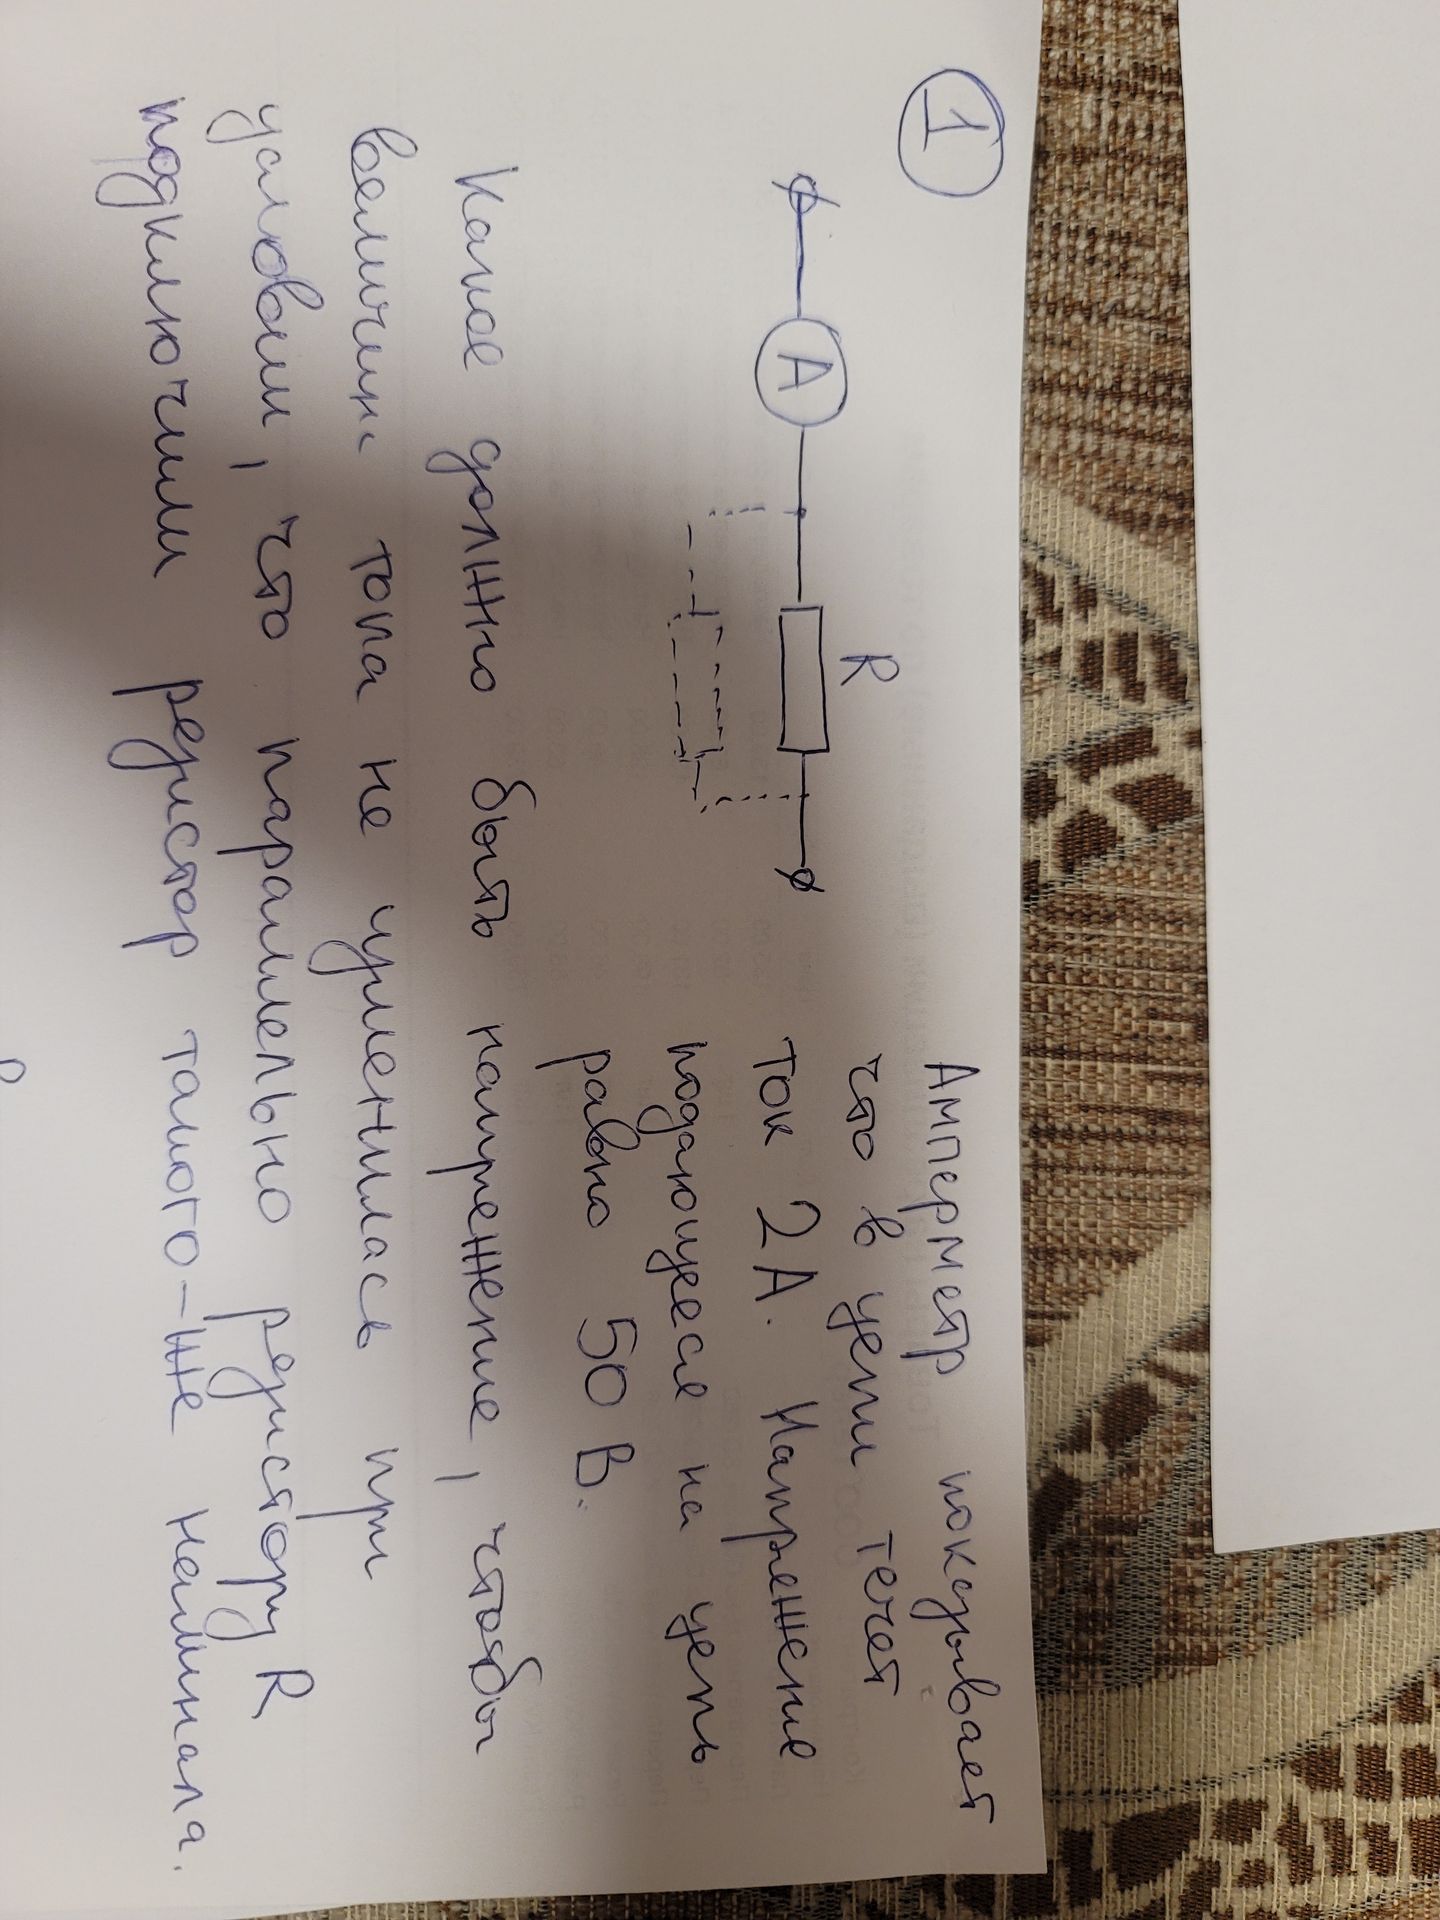 1
R
A
Амперметр показывает
что в цепи течет
ток 2А. Напряжение
подающееся на цепь
равно 50 В.
Какое должно быть напряжение, чтобы
величина тока не изменилась при
условии, что параллельно резистору R
подключили резистор такого-же наминала.